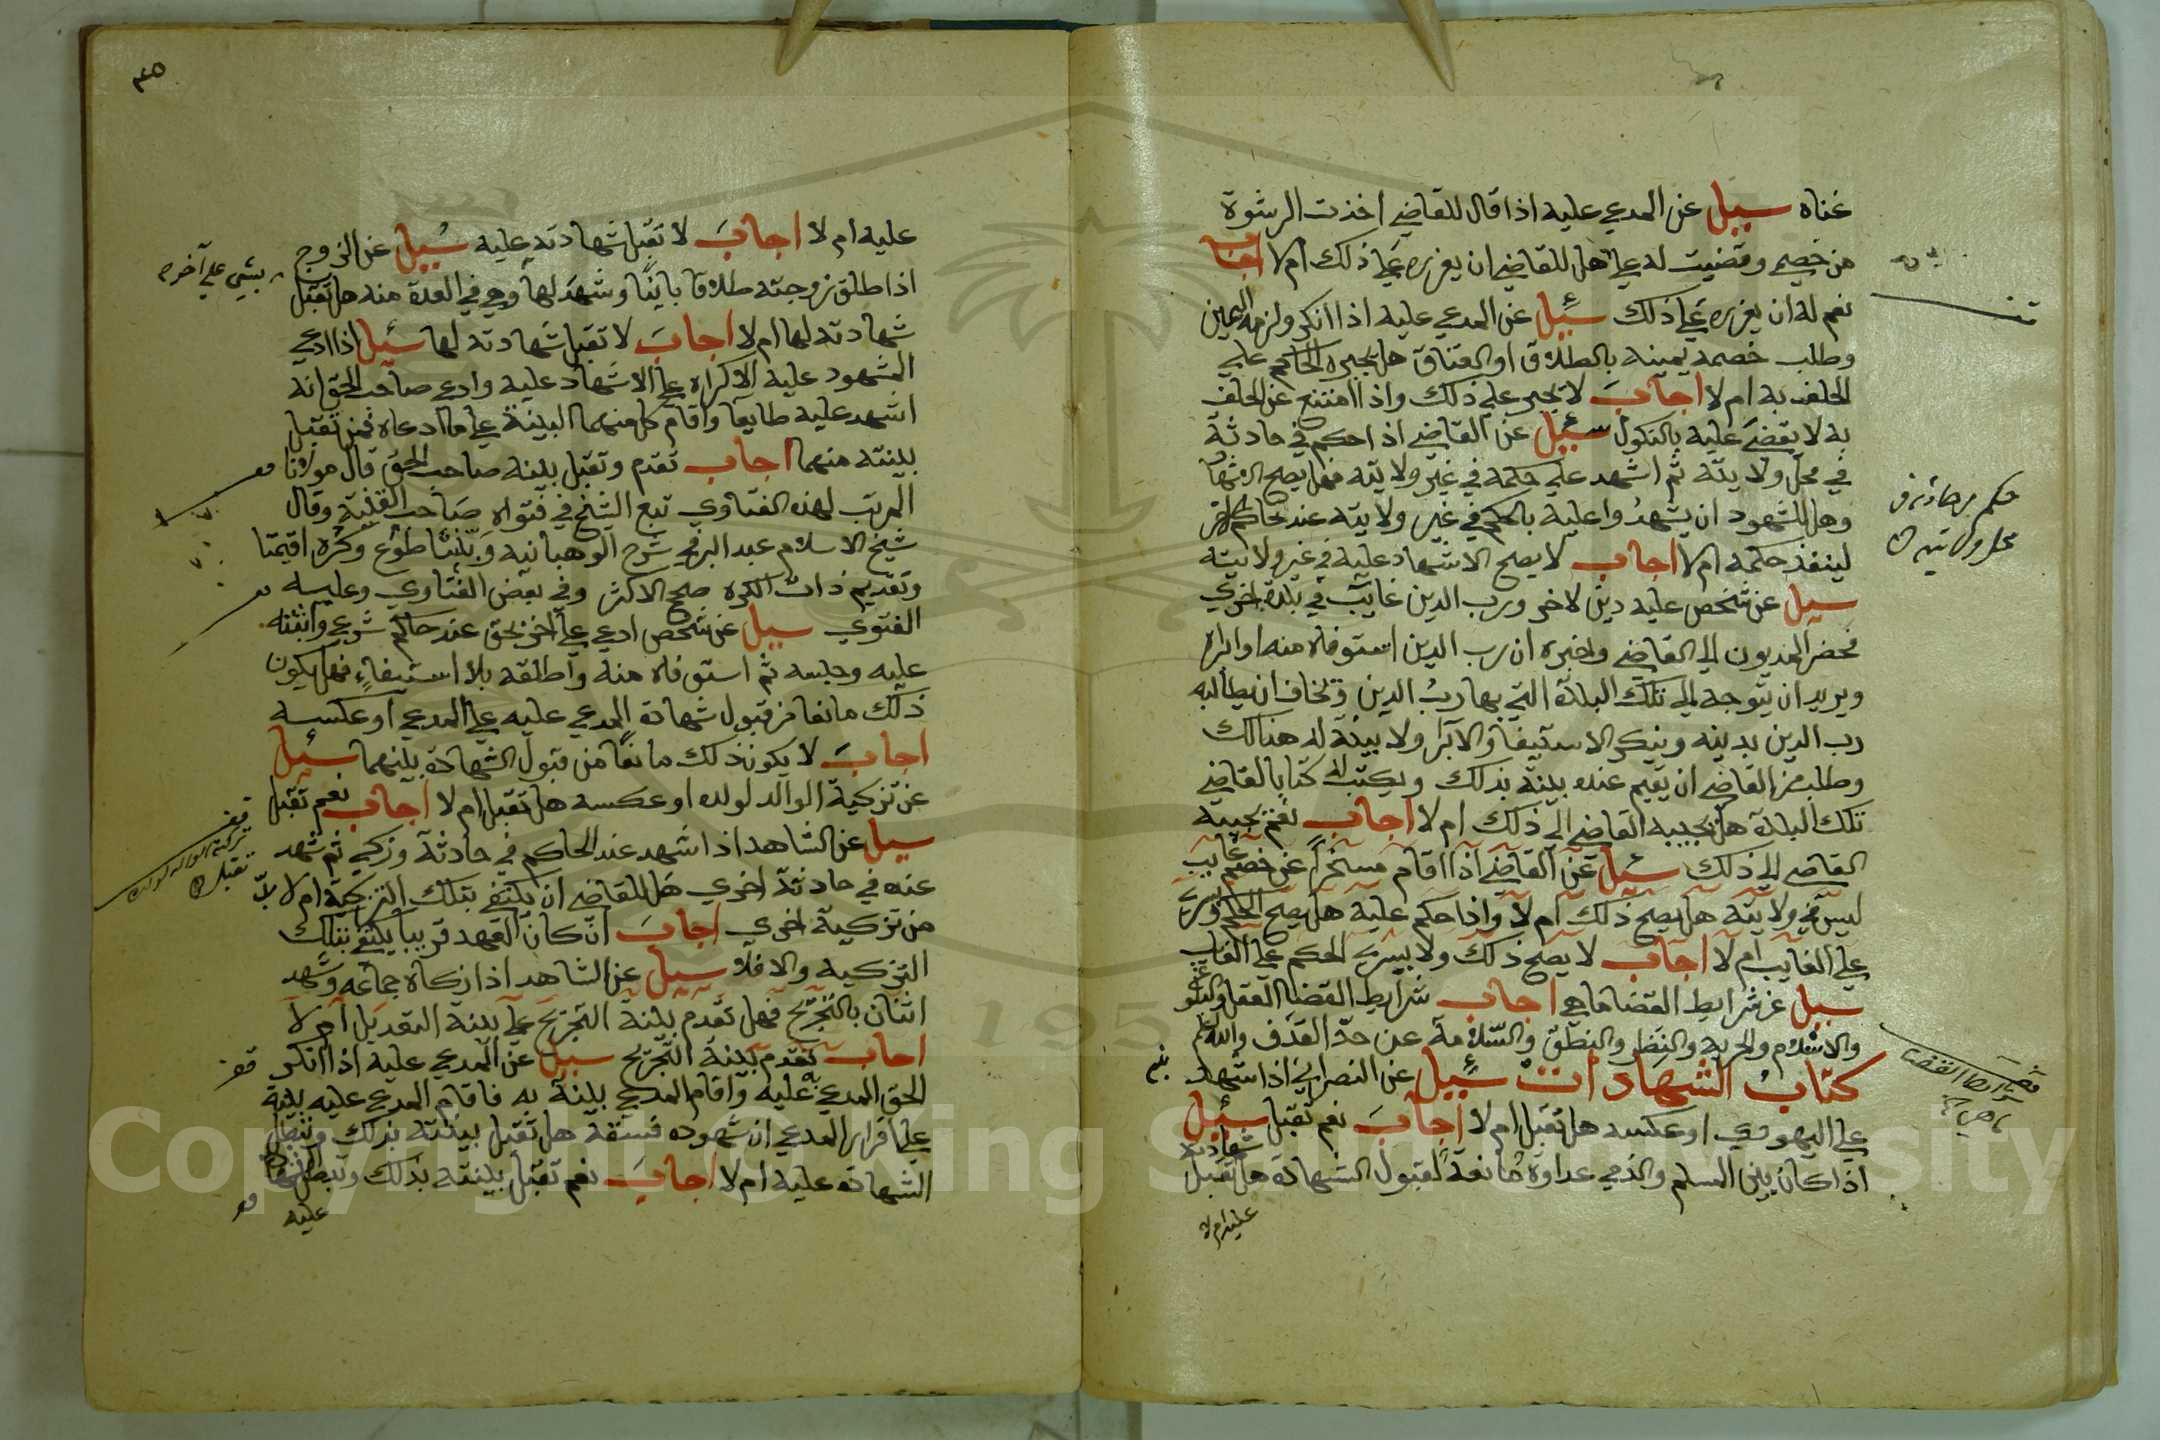 غناه سيل عن المدعي عليه اذا قال للقاضي اخذت الرشوة
من خصمي وقضيت له علي هل للقاضي ان يعزره علي ذلك ام لا اجاب
نعم له ان يعزره علي ذلك سئيل عن المدعي عليه اذا انكر ولزمه اليمين
وطلب خصمه يمينه بالطلاق او العتاق هل يجبره الحاكم علي
الحلف به ام لا اجاب لا يجبر علي ذلك واذا امتنع عن الحلف
به لا يقضي عليه بالنكول سئيل عن القاضي اذا حكم في حادثة
في محل ولايته ثم اشهد علي حكمه في غير ولايته فهل يصح الاشهاد
وهل للشهود ان يشهدوا عليه بالحكم في غير ولايته عند حاكم اخر
لينفذ حكمه ام لا اجاب لا يصح الاشهاد عليه في غير ولايته
سيل عن شخص عليه دين لاخر ورب الدين غايب في بلدة اخري
فحضر المديون الي القاضي واخبره ان رب الدين استوفاه منه او ابراه
ويريد ان يتوجه الي تلك البلدة التي بها رب الدين وخاف ان يطالبه
رب الدين بدينه وينكر الاستيفا والابرا ولا بينة له هنالك
وطلب من القاضي ان يقيم عنده بينة بذلك ويكتب له كتابا لقاضي
تلك البلدة هل يجيبه القاضي الي ذلك ام لا اجاب نعم يجيبه
القاضي الي ذلك سئيل عن القاضي اذا اقام مسخرا عن خصم غايب
ليس في ولايته هل يصح ذلك ام لا واذا حكم عليه هل يصح الحكم ويسري
علي الغايب ام لا اجاب لا يصح ذلك ولا يسري الحكم علي الغايب
سيل عن شرايط القضا ما هي اجاب شرايط القضا العقل والبلوغ
والاسلام والحرية والنظر والنطق والسلامة عن حد القذف والله اعلم
كتاب الشهادات سئيل عن النصراني اذا شهد
علي اليهودي او عكسه هل تقبل ام لا اجاب نعم تقبل سئيل
اذا كان بين المسلم والذمي عداوة مانعة لقبول الشهادة هل تقبل شهادته
عليه ام لا
حكم في حادثة في
محل ولايته
شرايط القضا
ما هي
٣٥
عليه ام لا اجاب لا تقبل شهادته عليه سئيل عن الزوج
اذا طلق زوجته طلاقا باينا وشهد لها وهي في العدة منه هل تقبل
شهادته لها ام لا اجاب لا تقبل شهادته لها سئيل اذا ادعي
المشهود عليه الاكراه علي الاشهاد عليه وادعي صاحب الحق انه
اشهد عليه طايعا واقام كل منهما البينة علي ما ادعاه فمن تقبل
بينته منهما اجاب تقدم وتقبل بينة صاحب الحق قال مولانا
المرتب لهذه الفتاوي تبع الشيخ في فتواه صاحب القنية وقال
شيخ الاسلام عبد البر في شرح الوهبانيه وبينتا طوع وكره اقيمتا
وتقديم ذات الكره صحح الاكثر وفي بعض الفتاوي وعليه
الفتوي سيل عن شخص ادعي علي اخر بحق عند حاكم شرعي واثبته
عليه وحبسه ثم استوفاه منه واطلقه بلا استيفاء فهل يكون
ذلك مانعا من قبول شهادة المدعي عليه علي المدعي او عكسه
اجاب لا يكون ذلك مانعا من قبول الشهادة بينهما سئيل
عن تزكية الوالد لولده او عكسه هل تقبل ام لا اجاب نعم تقبل
سيل عن الشاهد اذا شهد عند الحاكم في حادثة وزكي ثم شهد
عنده في حادثة اخري هل للقاضي ان يكتفي بتلك التزكية ام لا بد
من تزكية اخري اجاب ان كان العهد قريبا يكتفي بتلك
التزكيه والا فلا سيل عن الشاهد اذا زكاه جماعه وشهد
اثنان بالتجريح فهل تقدم بينة التجريح علي بينة التعديل ام لا
اجاب تقدم بينة التجريح سيل عن المدعي عليه اذا انكر
الحق المدعي به عليه واقام المدعي بينة به فاقام المدعي عليه بينة
علي اقرار المدعي ان شهوده فسقة هل تقبل بينته بذلك وتبطل
الشهادة عليه ام لا اجاب نعم تقبل بينته بذلك وتبطل الشهادة
عليه
تزكية الوالد لولده
تقبل
Copyright © King Saud University
195